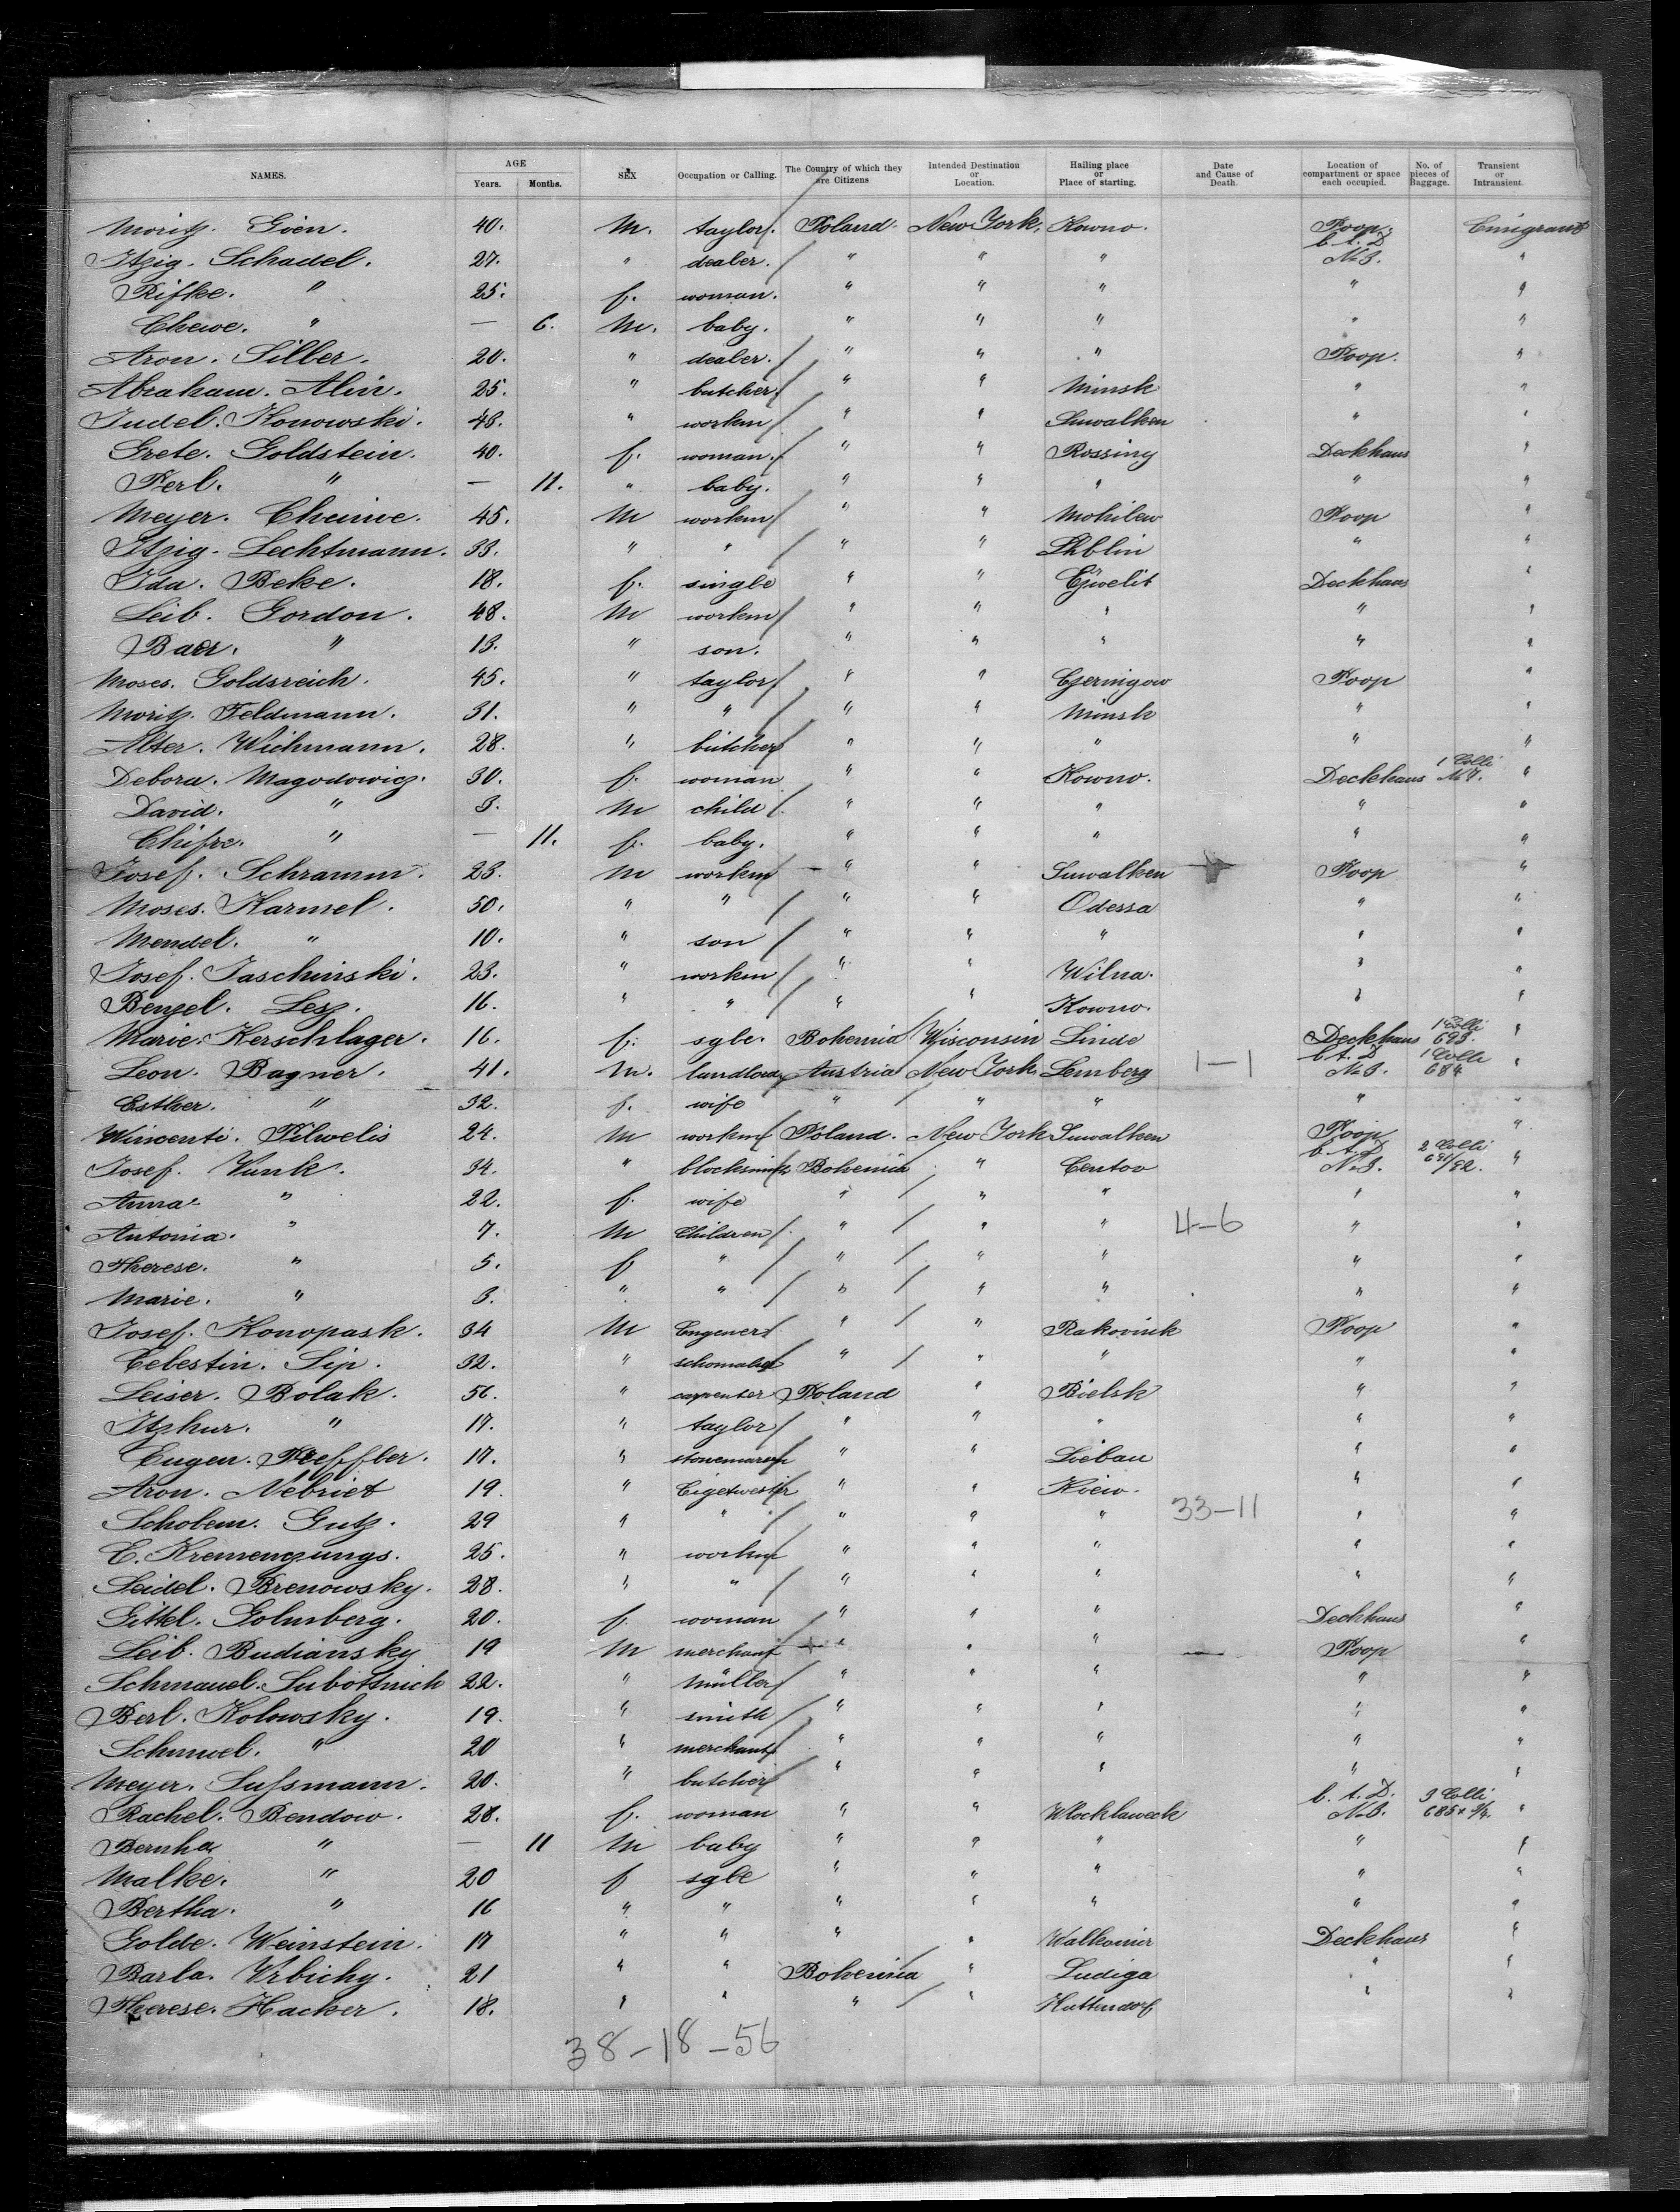 NAMES. AGE Years. Months. SEX Occupation or Calling. The Country of which they are Citizens Intended Destination or Location. Hailing place or Place of starting. Date and Cause of Death. Location of compartment or space each occupied. No. of pieces of Baggage. Transient or Intransient.
Moritz. Gien. 40. M. taylor. Poland. New York. Kowno. Poop. Emigrant
Itzig. Schadel. 27. " dealer. " " " C. A. D. No 3. "
Rifke. " 25. f. woman. " " " " "
Chewe. " — 6. M. baby. " " " " "
Aron. Silber. 20. " dealer. " " " Poop. "
Abraham. Alin. 25. " butcher " " Minsk " "
Judel. Konowski. 48. " workm " " Suwalken " "
Grete. Goldstein. 40. f. woman. " " Rossiny Deckhaus "
Perl. " — 11. " baby. " " " " "
Meyer. Cheinwe. 45. M workm " " Mohilew Poop "
Itzig. Lechtmann. 33. " " " " Lublin " "
Ida. Beke. 18. f. single " " Deckhaus "
Leib. Gordon. 48. M workm " " " " "
Baer. " 13. " son. " " " " "
Moses. Goldsreich. 45. " taylor " " Czernigow Poop "
Moritz. Feldmann. 31. " " " " Minsk " "
Alter. Wichmann. 28. " butcher " " " " "
Debora. Magodowicz. 30. f. woman " " Kowno. Deckhaus 1 Colli No 7. "
David. " 3. M child " " " " "
Chifre. " — 11. f. baby. " " " " "
Josef. Schramm. 23. M workm " " Suwalken Poop "
Moses. Karmel. 50. " " " " Odessa " "
Mendel. " 10. " son " " " " "
Josef. Jaschinski. 23. " workm " " Wilna. " "
Benzel. Lesz. 16. " " " " Kowno. " "
Marie. Kerschlager. 16. f. sgle. Bohemia Wisconsin Linde Deckhaus 1 Colli 693. "
Leon. Bagner. 41. M. landlord Austria New York Lemberg 1–1 C. A. D. No 3. 1 Colli 684 "
Esther. " 32. f. wife " " " " "
Wincenti. Pilwelis 24. M workm Poland. New York Suwalken Poop "
Josef. Vunk. 34. " blocksmith Bohemia " Centov C. A. D. No 3. 2 Colli 691/92. "
Anna " 22. f. wife " " " " "
Antonia. " 7. M Children " " " 4–6 " "
Therese. " 5. f " " " " " "
Marie. " 3. " " " " " " "
Josef. Konopask. 34 M Engener " " Rakovink Poop "
Celestin. Sip. 32. " schomaker " " " " "
Leiser. Bolak. 56. " carpenter Poland " Bielsk " "
Itzkur. " 17. " taylor " " " " "
Eugen. Pfeffler. 17. " stonemason " " Liebau " "
Aron. Nebriet 19. " " " Kiew. " "
Scholem. Gutz. 29 " " " " " 33–11 " "
C. Kremenzungs. 25. " workm " " " " "
Leidel. Brenowsky. 28. " " " " " " "
Gittel. Golmberg. 20. f. woman " " " Deckhaus "
Leib. Budiansky 19 M merchant " " " Poop "
Schmauel. Subottnick 22. " Müller " " " " "
Berl. Kolowsky. 19. " smith " " " " "
Schmuel. " 20 " merchant " " " " "
Meyer. Sussmann. 20. " butcher " " " " "
Rachel. Bendow. 28. f. woman " " Wlocklaweck C. A. D. No 3. 3 Colli "
Bernha " — 11 M baby " " " " "
Malke. " 20 f sgle " " " " "
Bertha. " 16 " " " " " " "
Golde. Weinstein. 17 " " " " Walkomier Deckhaus "
Barla. Vrbichy. 21 " " Bohemia " Ludiga " "
Therese. Hacker. 18. " " " " Huttendorf " "
38–18–56